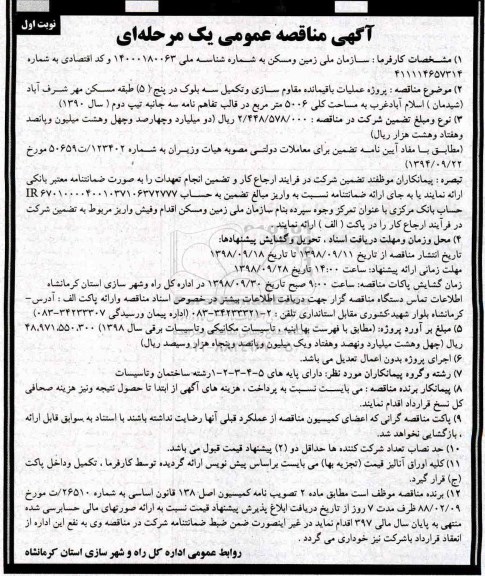 نوبت اول
آگهی مناقصه عمومی یک مرحله‌ای
۱) مشخصات کارفرما : سازمان ملی زمین ومسکن به شماره شناسه ملی ۱۴۰۰۰۱۸۰۰۶۳ و کد اقتصادی به شماره
۴۱۱۱۱۴۶۵۷۳۱۴
۲) موضوع مناقصه : پروژه عملیات باقیمانده مقاوم سازی وتکمیل سه بلوک در پنج (۵) طبقه مسکن مهر شرف آباد
(شیدمان ) اسلام آبادغرب به مساحت کلی ۵۰۰۶ متر مربع در قالب تفاهم نامه سه جانبه تیپ دوم ( سال ۱۳۹۰)
۳) نوع ومبلغ تضمین شرکت در مناقصه : ۲/۴۴۸/۵۷۸/۰۰۰ ریال (دو میلیارد وچهارصد وچهل وهشت میلیون وپانصد
وهفتاد وهشت هزار ریال)
(مطابق با مفاد آیین نامه تضمین برای معاملات دولتی مصوبه هیات وزیران به شماره ۱۲۳۴۰۲/ت۵۰۶۵۹ مورخ
(۱۳۹۴/۰۹/۲۲
تبصره : پیمانکاران موظفند تضمین شرکت در فرایند ارجاع کار و تضمین انجام تعهدات را به صورت ضمانتنامه معتبر بانکی
ارائه نمایند یا به جای ارائه ضمانتنامه نسبت به واریز مبالغ تضمین به حساب IR ۶۷۰۱۰۰۰۰۴۰۰۱۰۳۷۱۰۶۳۷۲۷۷۷
حساب بانک مرکزی با عنوان تمرکز وجوه سپرده بنام سازمان ملی زمین ومسکن اقدام وفیش واریز مربوط به تضمین شرکت
در فرآیند ارجاع کار را در پاکت ( الف ) ارائه نمایند.
۴) محل وزمان ومهلت دریافت اسناد ، تحویل وگشایش پیشنهادها:
تاریخ انتشار مناقصه از تاریخ ۱۳۹۸/۰۹/۱۱ تا تاریخ ۱۳۹۸/۰۹/۱۸
مهلت زمانی ارائه پیشنهاد: ساعت ۱۴:۰۰ تاریخ ۱۳۹۸/۰۹/۲۸
زمان گشایش پاکات مناقصه: ساعت ۹:۰۰ صبح تاریخ ۱۳۹۸/۰۹/۳۰ در اداره کل راه وشهر سازی استان کرمانشاه
اطلاعات تماس دستگاه مناقصه گزار جهت دریافت اطلاعات بیشتر در خصوص اسناد مناقصه وارائه پاکت الف : آدرس-
کرمانشاه بلوار شهیدکشوری مقابل استانداری تلفن : ۲-۳۴۲۳۳۲۲۱-۰۸۳ (اداره پیمان ورسیدگی ۳۴۲۳۳۳۰۷-۰۸۳)
۵) مبلغ بر آورد پروژه: (مطابق با فهرست بها ابنیه ، تاسیسات مکانیکی وتاسیسات برقی سال ۱۳۹۸) ۴۸,۹۷۱,۵۵۰,۳۰۰
ریال (چهل وهشت میلیارد ونهصد وهفتاد ویک میلیون وپانصد وپنجاه هزار وسیصد ریال)
۶) اجرای پروژه بدون اعمال تعدیل می باشد.
۷) رشته وگروه پیمانکاران مورد نظر: دارای پایه های ۵-۴-۳-۲-۱رشته ساختمان وتاسیسات
۸) پیمانکار برنده مناقصه : می بایست نسبت به پرداخت ، هزینه های آگهی از ابتدا تا حصول نتیجه ونیز هزینه صحافی
کل نسخ قرارداد اقدام نمایند.
۹) پاکت مناقصه گرانی که اعضای کمیسیون مناقصه از عملکرد قبلی آنها رضایت نداشته باشند با استناد به سوابق قابل ارائه
، بازگشایی نخواهد شد.
۱۰) حد نصاب تعداد شرکت کننده ها حداقل دو (۲) پیشنهاد قیمت قبول می باشد.
۱۱) کلیه اوراق آنالیز قیمت (تجزیه بها) می بایست براساس پیش نویس ارائه گردیده توسط کارفرما ، تکمیل وداخل پاکت
(ج) قرار گیرد.
۱۲) برنده مناقصه موظف است مطابق ماده ۲ تصویب نامه کمیسیون اصل ۱۳۸ قانون اساسی به شماره ۲۶۵۱۰/ت مورخ
۸۸/۰۲/۰۹ ظرف مدت ۷ روز از تاریخ دریافت ابلاغ پذیرش پیشنهاد قیمت نسبت به ارائه صورتهای مالی حسابرسی شده
منتهی به پایان سال مالی ۳۹۷ اقدام نماید در غیر اینصورت ضمن ضبط ضمانتنامه شرکت در مناقصه وی به نفع این اداره از
انعقاد قرارداد باشرکت نیز خودداری می گردد .
روابط عمومی اداره کل راه و شهر سازی استان کرمانشاه